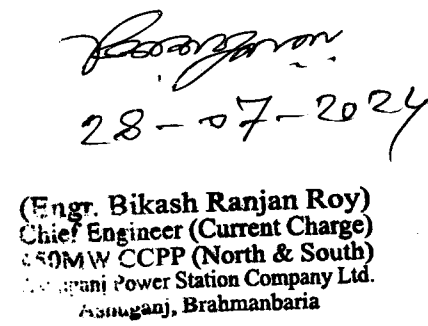 28-07-2024
(Engr. Bikash Ranjan Roy)
Chief Engineer (Current Charge)
450MW CCPP (North & South)
Power Station Company Ltd.
Ashuganj, Brahmanbaria